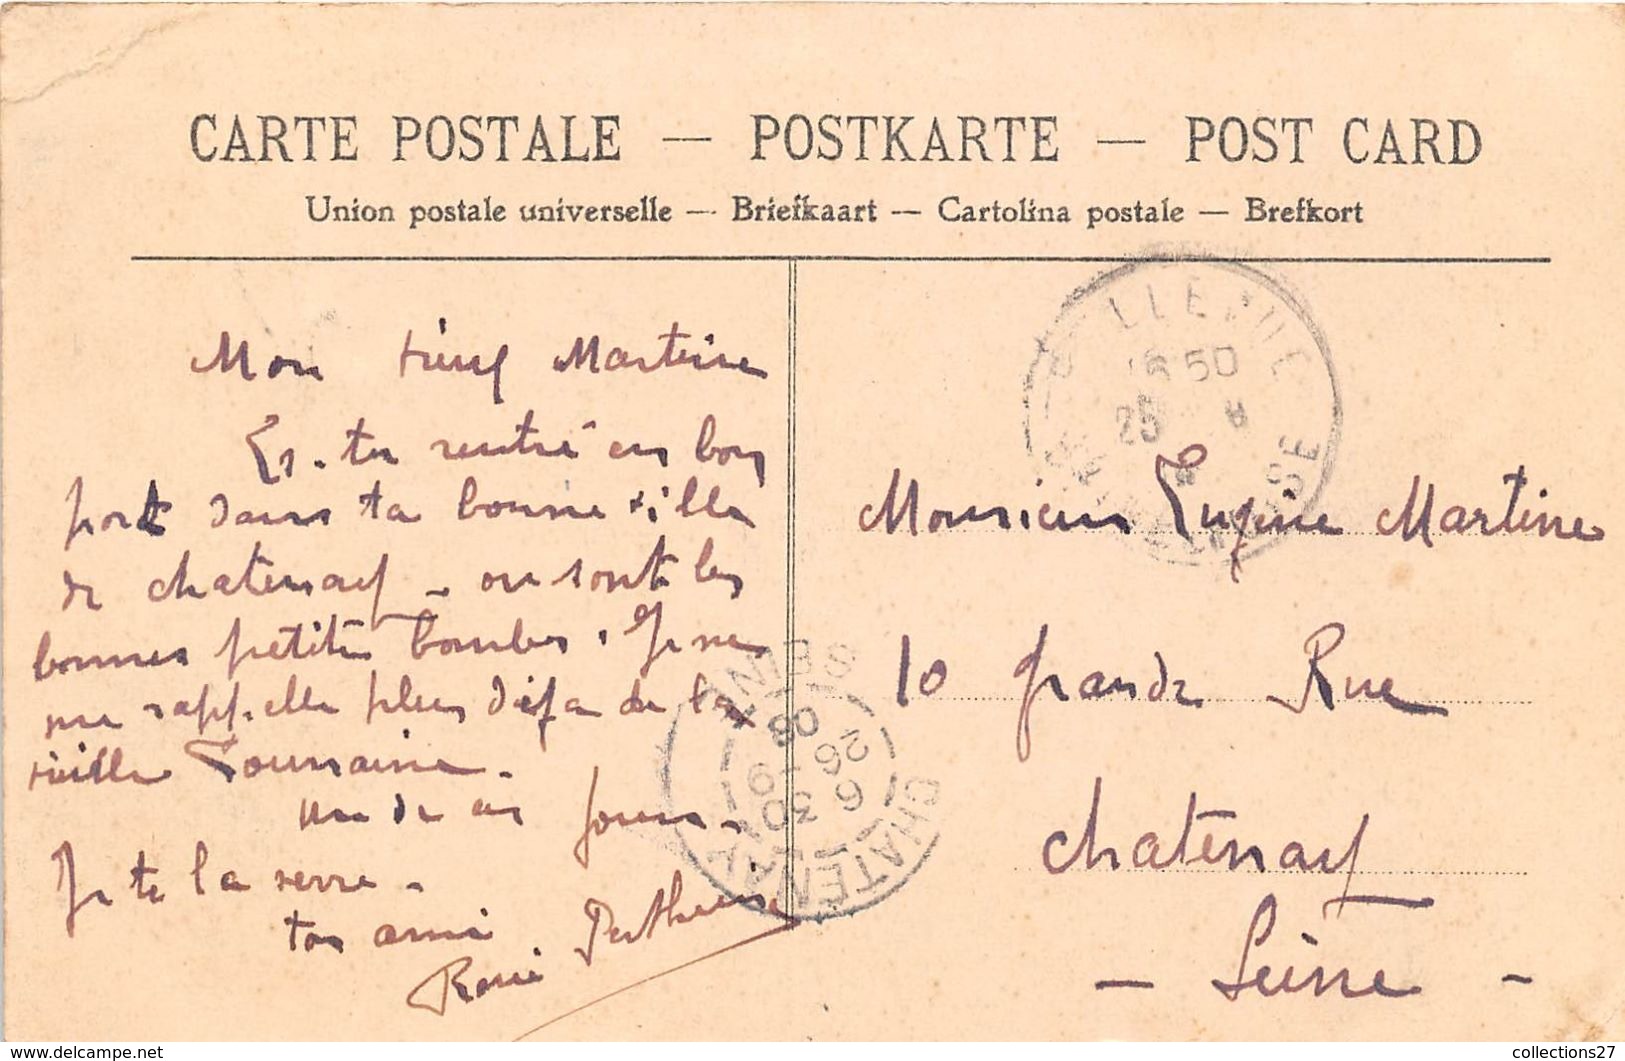 CARTE POSTALE — POSTKARTE — POST CARD
Union postale universelle — Briefkaart — Cartolina postale — Brefkort
Mon vieux Martine
Es-tu rentré en bon
port dans ta bonne ville
de chatenay - ou sont les
bonnes petites bombes. Je ne
me rappelle plus déja de la
vieille Touraine.
un de ces jours.
Je te la serre.
ton ami
René
Monsieur Eugène Martine
10 grande Rue
chatenay
- Seine -
16 50
25
CHATENAY
6 30
26 -9
08
SEINE
collections27